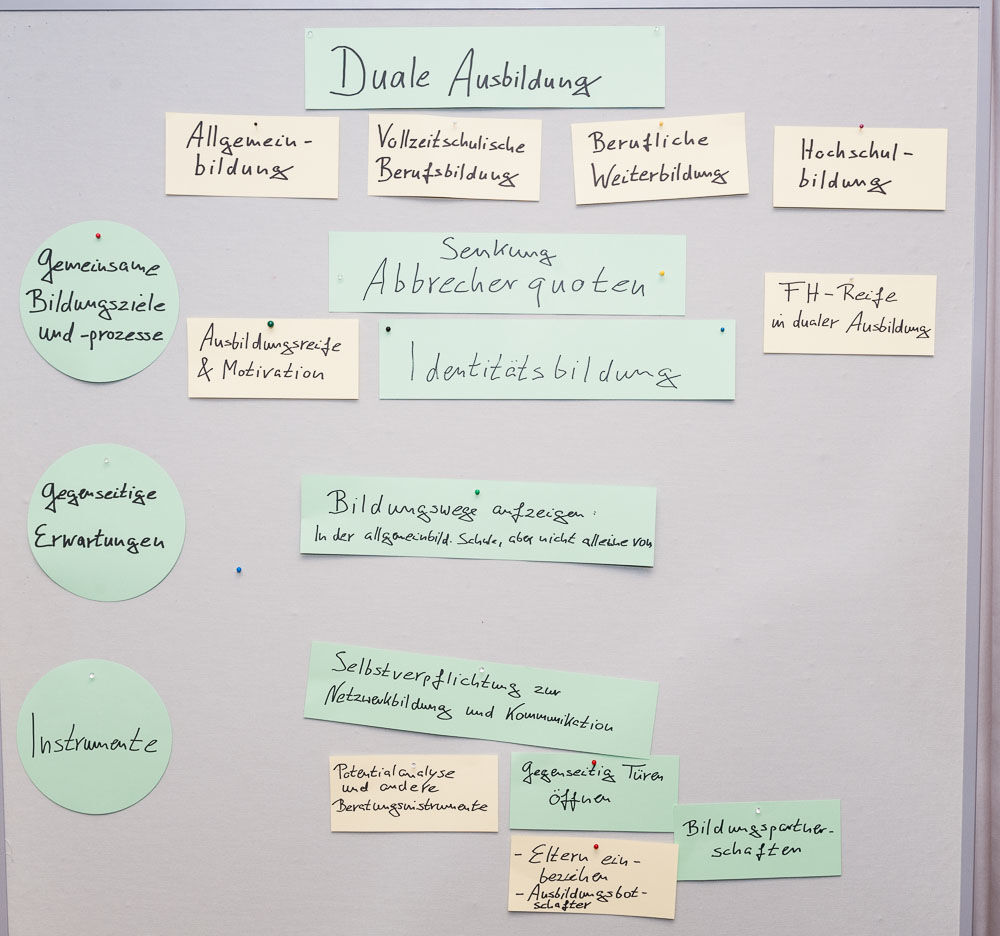 Duale Ausbildung
Allgemein-
bildung
Vollzeitschulische
Berufsbildung
Berufliche
Weiterbildung
Hochschul-
bildung
Gemeinsame
Bildungsziele
und -prozesse
Senkung
Abbrecherquoten
FH-Reife
in dualer Ausbildung
Ausbildungsreife
& Motivation
Identitätsbildung
Gegenseitige
Erwartungen
Bildungswege aufzeigen:
In der allgemeinbild. Schule, aber nicht alleine von
Instrumente
Selbstverpflichtung zur
Netzwerkbildung und Kommunikation
Potentialanalyse
und andere
Beratungsinstrumente
Gegenseitig Türen
öffnen
Bildungspartner-
schaften
- Eltern ein-
beziehen
- Ausbildungsbot-
schafter